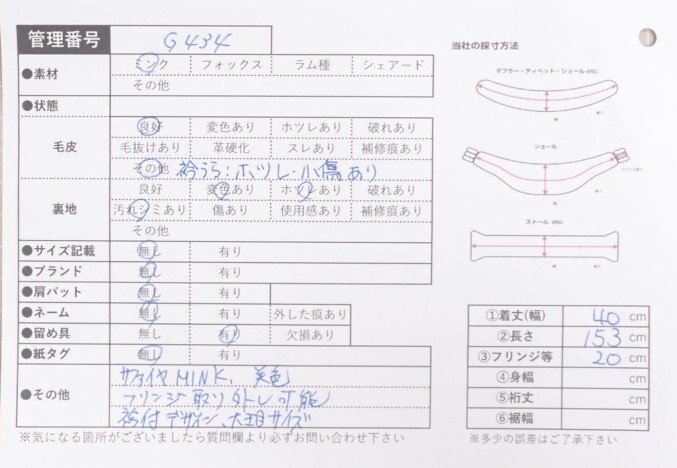 管理番号 G434
●素材 ミンク フォックス ラム種 シェアード
その他
●状態
毛皮 良好 変色あり ホツレあり 破れあり
毛抜けあり 革硬化 スレあり 補修痕あり
その他 衿うら:ホツレ・小傷あり
裏地 良好 変色あり ホツレあり 破れあり
汚れシミあり 傷あり 使用感あり 補修痕あり
その他
●サイズ記載 無し 有り
●ブランド 無し 有り
●肩パット 無し 有り
●ネーム 無し 有り 外した痕あり
●留め具 無し 有り 欠損あり
●紙タグ 無し 有り
●その他 サファイヤMINK、美色
フリンジ取り外し可能
衿付デザイン、大判サイズ
※気になる箇所がございましたら質問欄より必ずお問い合わせ下さい
当社の採寸方法
マフラー・ティペット・ショール etc.
ショール
ストール etc.
①着丈(幅) 40 cm
②長さ 153 cm
③フリンジ等 20 cm
④身幅 cm
⑤裄丈 cm
⑥裾幅 cm
※多少の誤差はご了承下さい